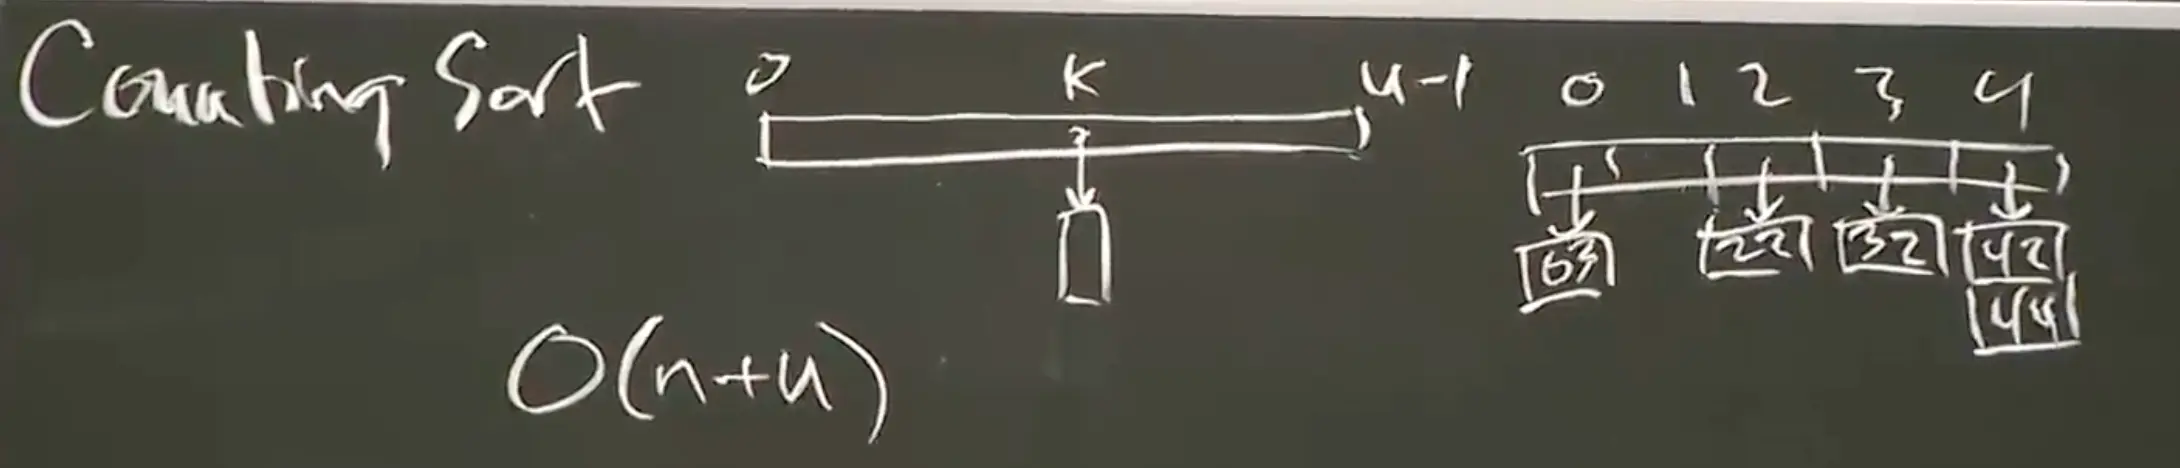 Counting Sort 0 K u-1 0 1 2 3 4
03 22 32 42
44
O(n+u)